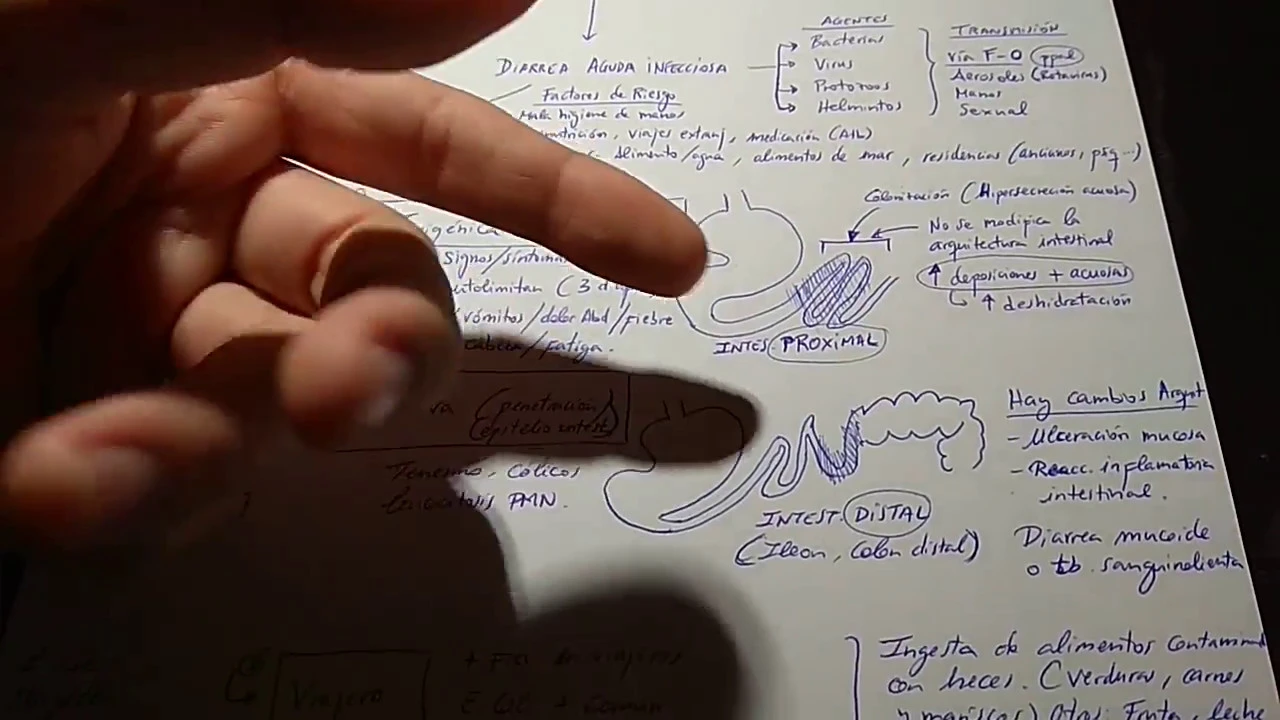 DIARREA AGUDA INFECCIOSA
AGENTES
Bacterias
Virus
Protozoos
Helmintos
TRANSMISIÓN
vía F-O ppal
Aerosoles (Rotavirus)
Manos
Sexual
Factores de Riesgo
Mala higiene de manos
viajes extranj, medicación (AIL)
Alimento/agua, alimentos de mar, residencias (ancianos, psq...)
Colonización (Hipersecreción acuosa)
No se modifica la
arquitectura intestinal
↑ deposiciones + acuosas
↑ deshidratación
INTES. PROXIMAL
signos/síntomas
autolimitan (3
vómitos/dolor Abd/fiebre
cabeza/fatiga.
(penetración
epitelio intest)
Tenesmo, cólicos
Leucocitosis PMN.
INTEST. DISTAL
(Ileon, Colon distal)
Hay cambios Arquit
- Ulceración mucosa
- Reacc. inflamatoria
intestinal.
Diarrea mucoide
o tb. sanguinolienta
Viajero
+ Fte de viajeros
E QC + común
Ingesta de alimentos contamin
con heces. (verduras, carnes
y mariscos) Otos: Fruta, leche